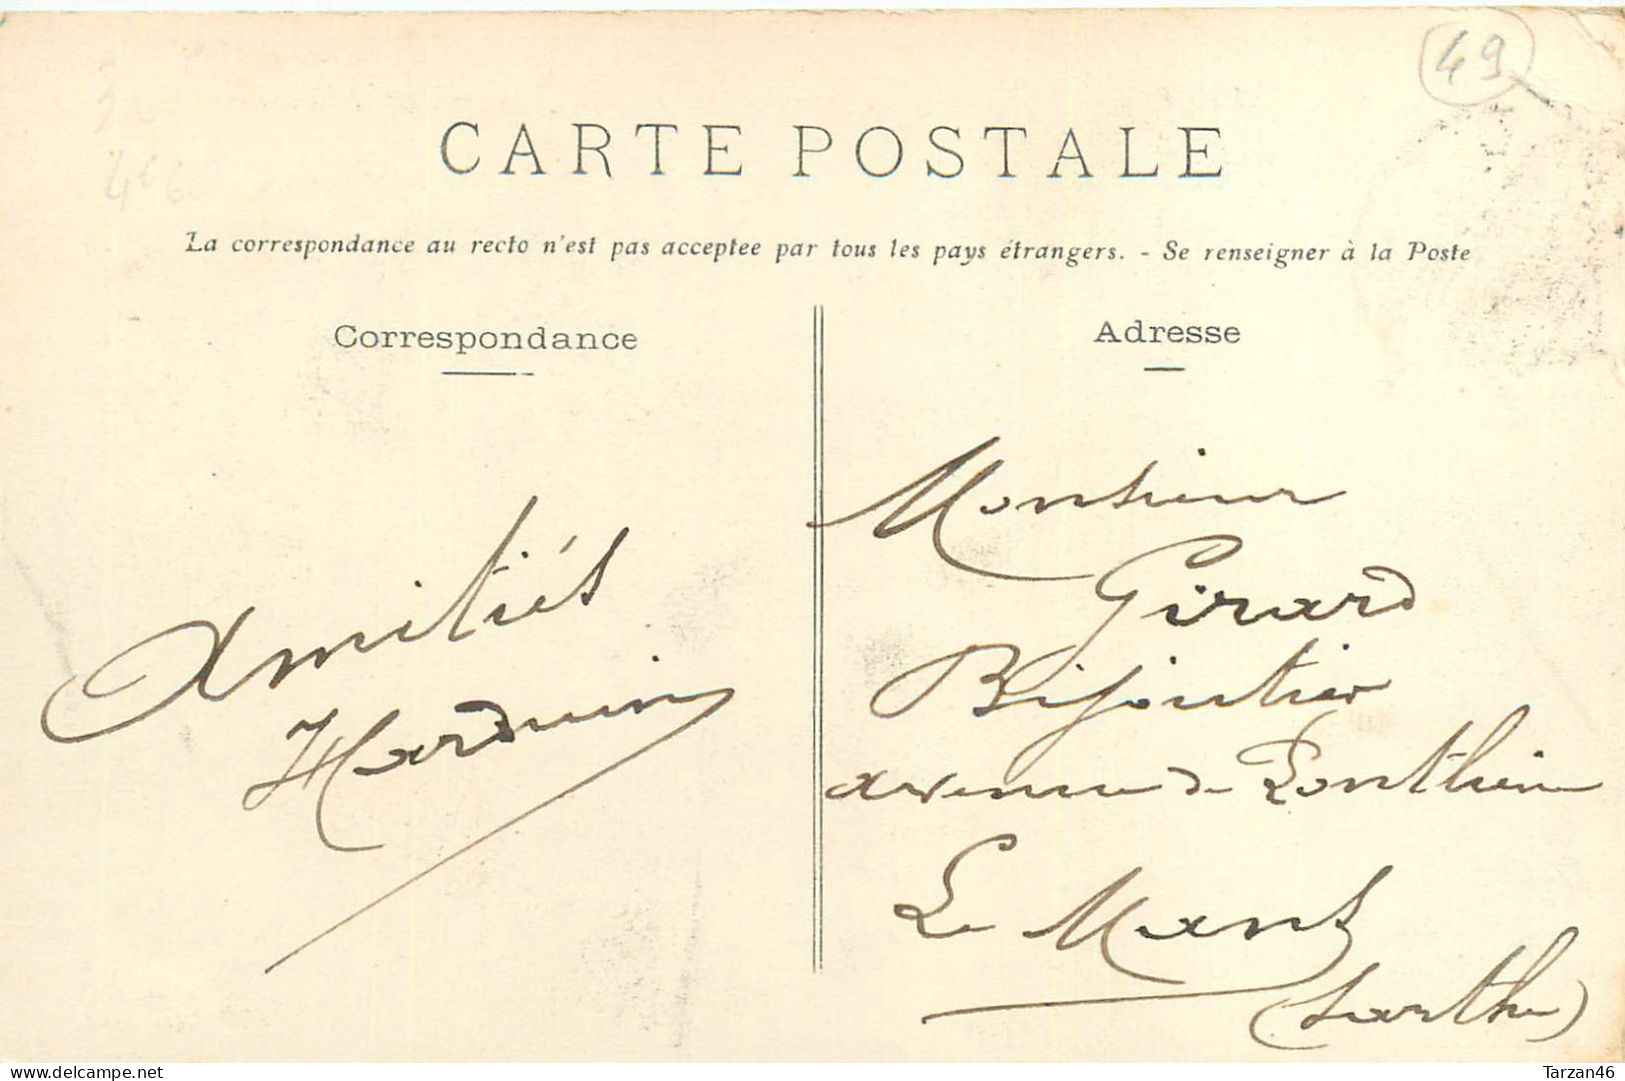 49
CARTE POSTALE
La correspondance au recto n'est pas acceptee par tous les pays étrangers. - Se renseigner à la Poste
Correspondance
Adresse
Amitiés
Harduin
Monsieur
Girard
Bijoutier
avenue de Ponthieu
Le Mans
(Sarthe)
www.delcampe.net
Tarzan46